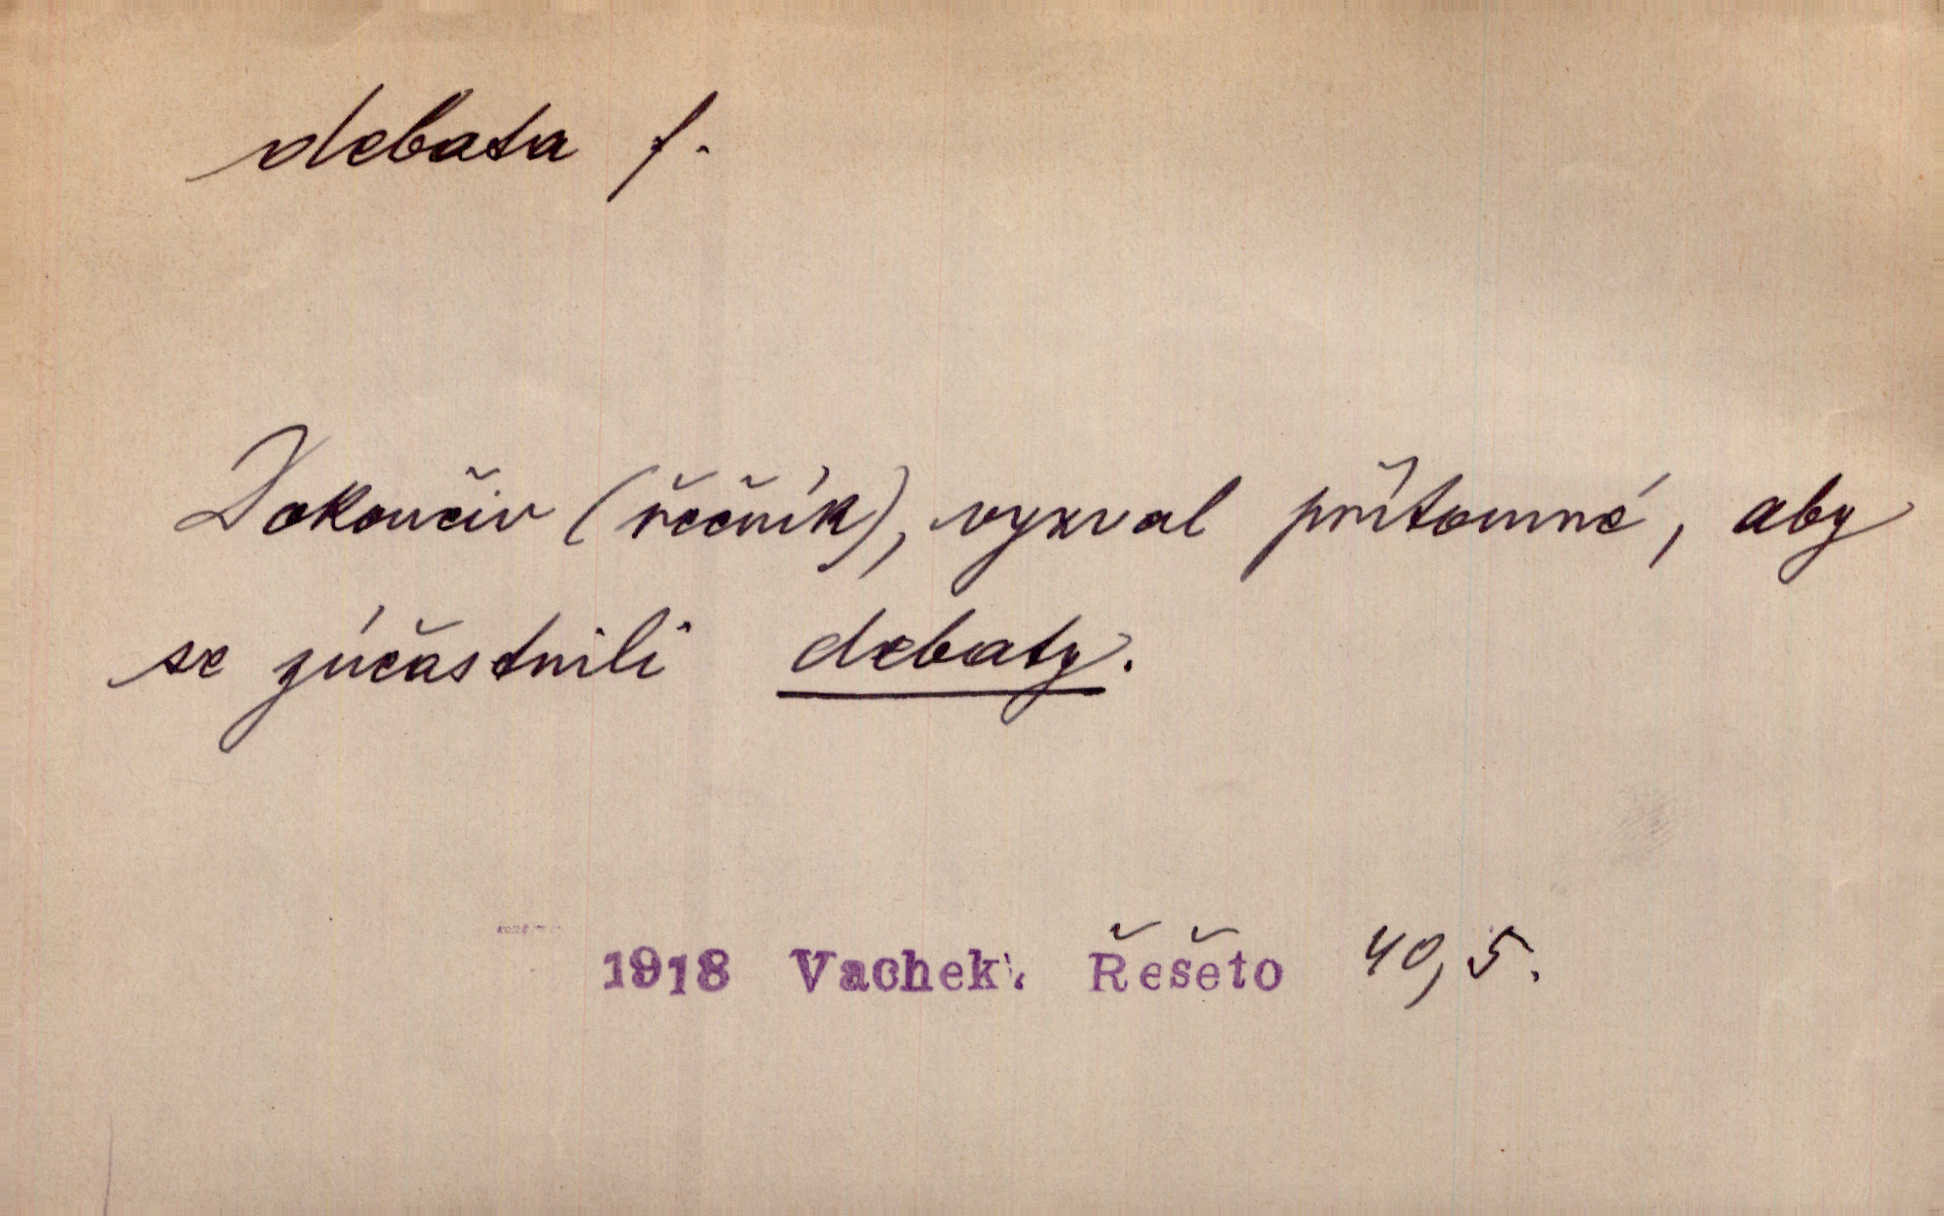 debata f.
Dokončiv (řečník), vyzval přítomné, aby
se zúčastnili debaty.
1918 Vachek: Řešeto 40,5.